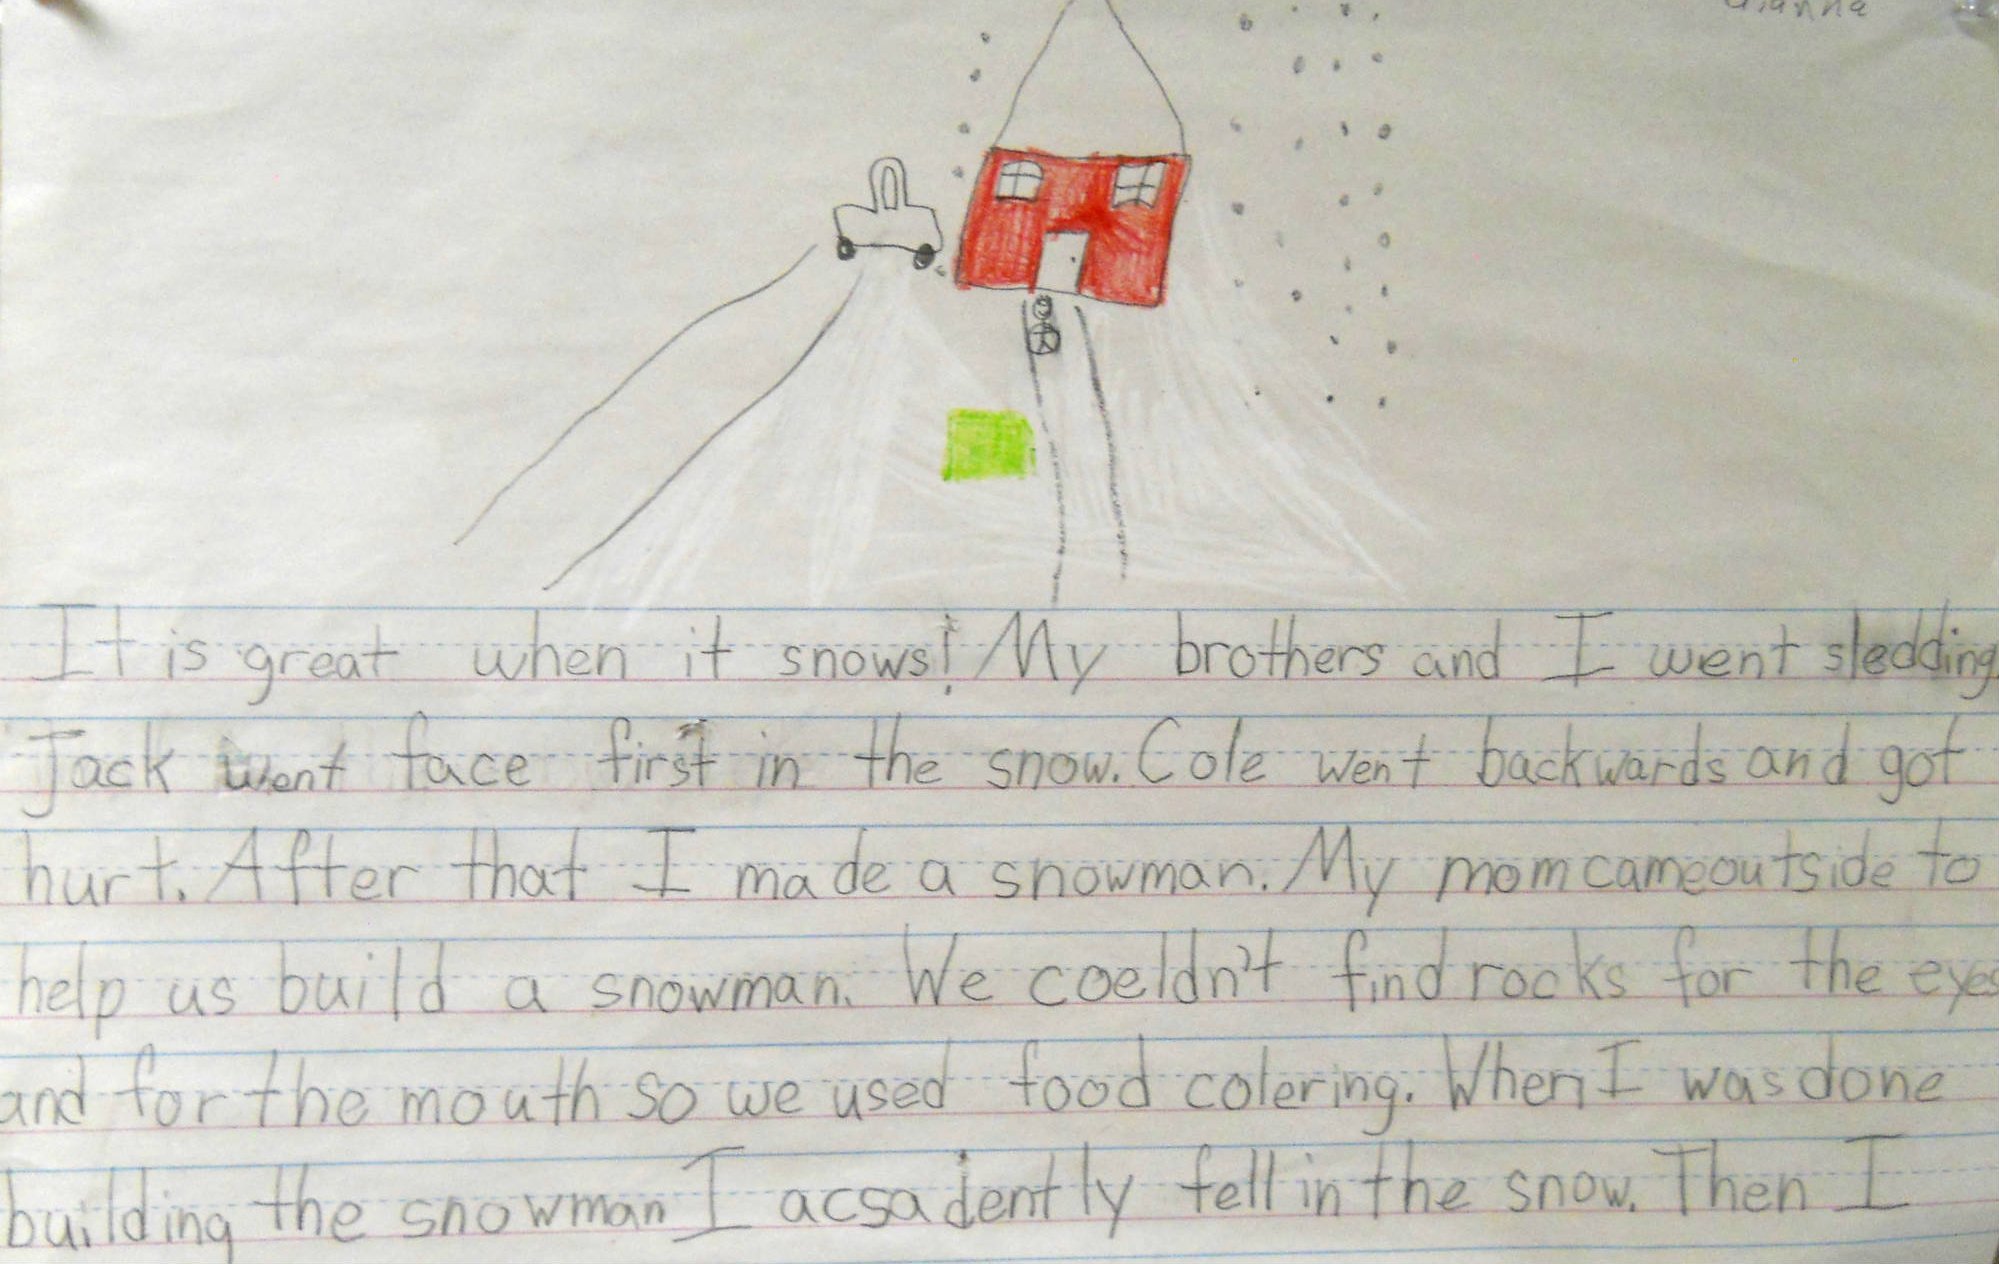 Gianna
It is great when it snows! My brothers and I went sledding.
Jack went face first in the snow. Cole went backwards and got
hurt. After that I made a snowman. My mom came outside to
help us build a snowman. We coeldn't find rocks for the eyes
and for the mouth so we used food colering. When I was done
building the snowman I acsadently fell in the snow. Then I